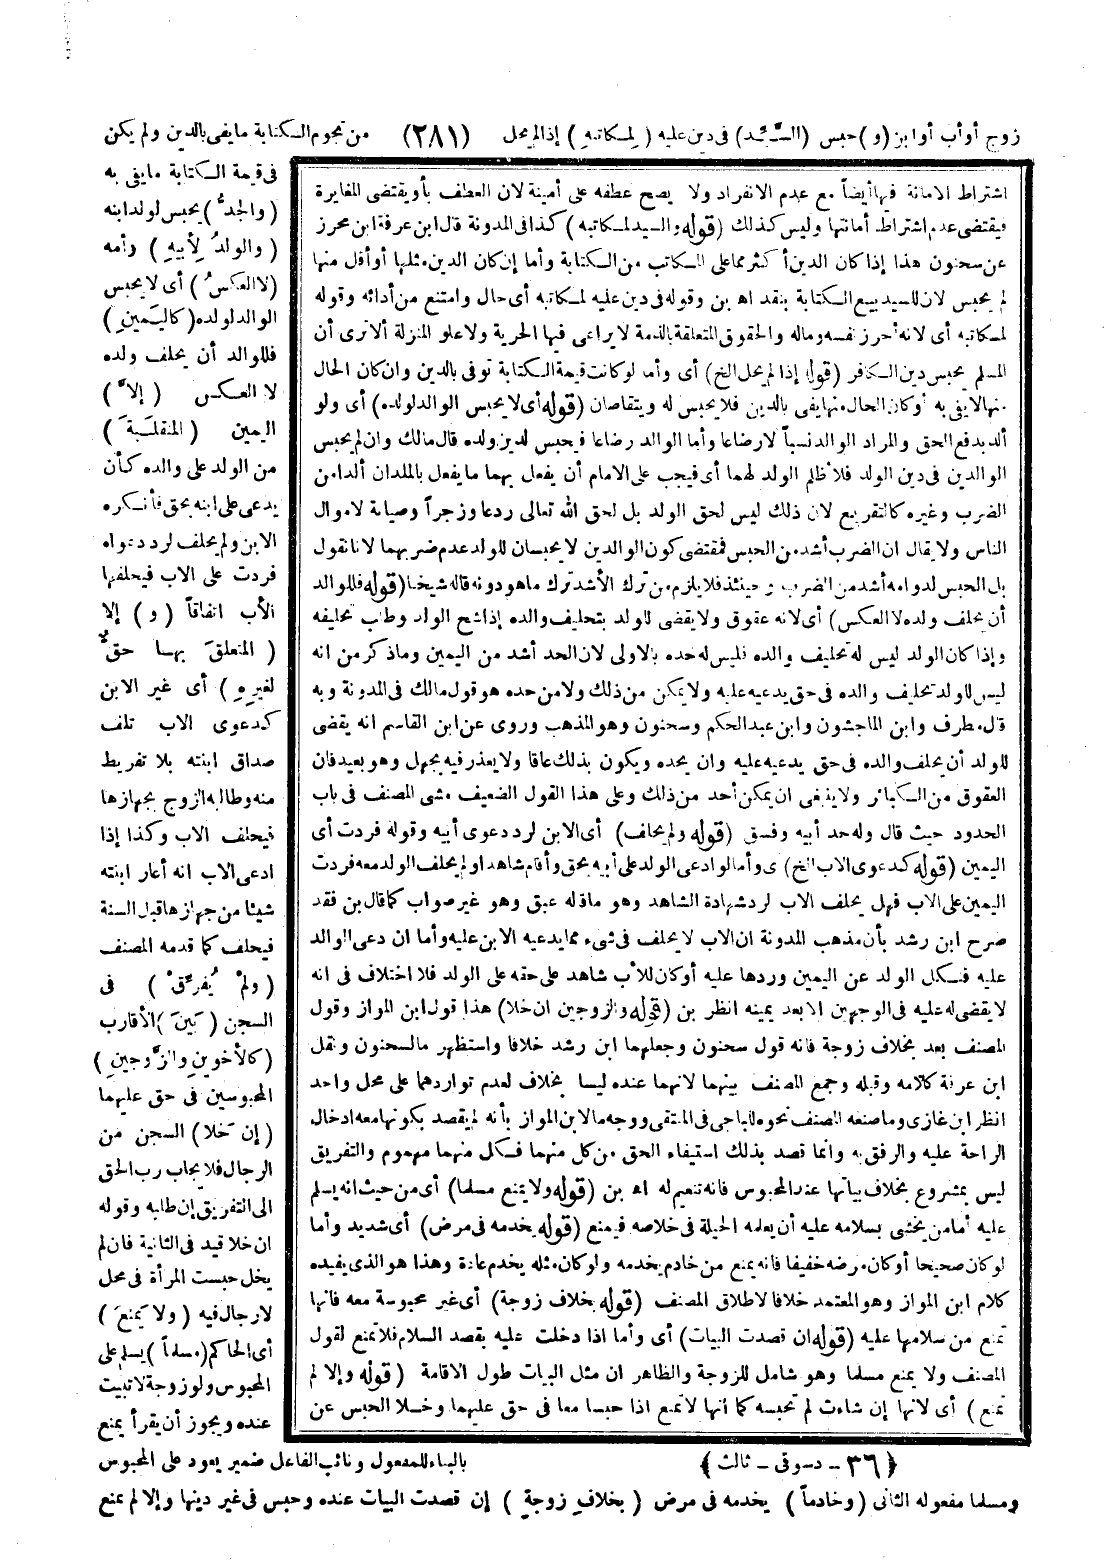 زوج أو أب أو ابن (و) حبس (السَّيِّد) فى دين عليه (لِمكاتبهِ) إذا لم يحل (٢٨١) من نجوم الكتابة ما يفى بالدين ولم يكن
فى قيمة الكتابة ما يفى به
(والجدُّ) يحبس لولد ابنه
(والولدُ لِأبيهِ) وأمه
(لا العكسُ) أى لا يحبس
الوالد لولده (كاليَمينِ)
فللوالد أن يحلف ولده
لا العكس (إلاَّ)
اليمين (المنقلَبةَ)
من الولد على والده كأن
يدعى على ابنه بحق فأنكره
الابن ولم يحلف لرد دعواه
فردت على الاب فيحلفها
الأب اتفاقاً (و) إلا
(المتعلقَ بها حقٌّ
لغيرِهِ) أى غير الابن
كدعوى الاب تلف
صداق ابنته بلا تفريط
منه وطالبه الزوج بجهازها
فيحلف الاب وكذا إذا
ادعى الاب انه أعار ابنته
شيئا من جهازها قبل السنة
فيحلف كما قدمه المصنف
(ولمْ يُفرَّقْ) فى
السجن (بَينَ) الأقارب
(كالأخوينِ والزَّوجينِ)
المحبوسين فى حق عليهما
(إن خَلا) السجن من
الرجال فلا يجاب رب الحق
الى التفريق إن طلبه وقوله
ان خلا قيد فى الثانية فان لم
يخل حبست المرأة فى محل
لا رجال فيه (ولا يَمنعَ)
أى الحاكم (مسلماً) يسلم على
المحبوس ولو زوجة لا تبيت
عنده ويجوز أن يقرأ يمنع
اشتراط الامانة فيها أيضاً مع عدم الانفراد ولا يصح عطفه على أمينة لان العطف بأو يقتضى المغايرة
فيقتضى عدم اشتراط أمانتها وليس كذلك (قوله والسيد لمكاتبه) كذا فى المدونة قال ابن عرفة ابن محرز
عن سحنون هذا إذا كان الدين أكثر مما على المكاتب من الكتابة وأما إن كان الدين مثلها أو أقل منها
لم يحبس لان للسيد بيع الكتابة بنقد اه بن وقوله فى دين عليه لمكاتبه أى حال وامتنع من أدائه وقوله
لمكاتبه أى لانه أحرز نفسه وماله والحقوق المتعلقة بالذمة لا يراعى فيها الحرية ولا علو المنزلة ألا ترى أن
المسلم يحبس دين الكافر (قوله إذا لم يحل الخ) أى وأما لو كانت قيمة الكتابة توفى بالدين وان كان الحال
منها لا يفى به أو كان الحال منها يفى بالدين فلا يحبس له ويتقاصان (قوله أى لا يحبس الوالد لولده) أى ولو
ألد بدفع الحق والمراد الوالد نسباً لا رضاعا وأما الوالد رضاعا فيحبس لدين ولده قال مالك وان لم يحبس
الوالدين فى دين الولد فلا ظلم الولد لهما أى فيجب على الامام أن يفعل بهما ما يفعل بالملدان ألدا من
الضرب وغيره كالتقريع لان ذلك ليس لحق الولد بل لحق الله تعالى ردعا وزجراً وصيانة لاموال
الناس ولا يقال ان الضرب أشد من الحبس فمقتضى كون الوالدين لا يحبسان للولد عدم ضربهما لانا نقول
بل الحبس لدوامه أشد من الضرب وحينئذ فلا يلزم من ترك الأشد ترك ما هو دونه قاله شيخنا (قوله فللوالد
أن يحلف ولده لا العكس) أى لانه عقوق ولا يقضى للولد بتحليف والده إذا شح الولد وطلب تحليفه
وإذا كان الولد ليس له تحليف والده فليس له حده بالاولى لان الحد أشد من اليمين وما ذكر من انه
ليس للولد تحليف والده فى حق يدعيه عليه ولا يمكن من ذلك ولا من حده هو قول مالك فى المدونة وبه
قال مطرف وابن الماجشون وابن عبد الحكم وسحنون وهو المذهب وروى عن ابن القاسم انه يقضى
للولد أن يحلف والده فى حق يدعيه عليه وان يحده ويكون بذلك عاقا ولا يعذر فيه بجهل وهو بعيد فان
العقوق من الكبائر ولا ينبغى ان يمكن أحد من ذلك وعلى هذا القول الضعيف مشى المصنف فى باب
الحدود حيث قال وله حد أبيه وفسق (قوله ولم يحلف) أى الابن لرد دعوى أبيه وقوله فردت أى
اليمين (قوله كدعوى الاب الخ) ى وأما لو ادعى الولد على أبيه بحق وأقام شاهدا ولم يحلف الولد معه فردت
اليمين على الاب فهل يحلف الاب لرد شهادة الشاهد وهو ما قاله عبق وهو غير صواب كما قال بن فقد
صرح ابن رشد بأن مذهب المدونة ان الاب لا يحلف فى شىء مما يدعيه الابن عليه وأما ان دعى الوالد
عليه فنكل الولد عن اليمين وردها عليه أو كان للأب شاهد على حقه على الولد فلا اختلاف فى انه
لا يقضى له عليه فى الوجهين الا بعد يمينه انظر بن (قوله والزوجين ان خلا) هذا قول ابن المواز وقول
المصنف بعد بخلاف زوجة فانه قول سحنون وجعلهما ابن رشد خلافا واستظهر ما لسحنون ونقل
ابن عرفة كلامه وقبله وجمع المصنف بينهما لانهما عنده ليسا بخلاف لعدم تواردهما على محل واحد
انظر ابن غازى وما صنعه المصنف نحوه للباجى فى المنتقى ووجه ما لابن المواز بأنه لم يقصد بكونها معه ادخال
الراحة عليه والرفق به وانما قصد بذلك استيفاء الحق من كل منهما فكل منهما مهموم والتفريق
ليس بمشروع بخلاف بياتها عند المحبوس فانه تنعيم له اه بن (قوله ولا يمنع مسلما) أى من حيث انه يسلم
عليه أما من يخشى بسلامه عليه أن يعلمه الحيلة فى خلاصه فيمنع (قوله يخدمه فى مرض) أى شديد وأما
لو كان صحيحا أو كان مرضه خفيفا فانه يمنع من خادم يخدمه ولو كان مثله يخدم عادة وهذا هو الذى يفيده
كلام ابن المواز وهو المعتمد خلافا لاطلاق المصنف (قوله بخلاف زوجة) أى غير محبوسة معه فانها
تمنع من سلامها عليه (قوله ان قصدت البيات) أى وأما اذا دخلت عليه بقصد السلام فلا تمنع لقول
المصنف ولا يمنع مسلما وهو شامل للزوجة والظاهر ان مثل البيات طول الاقامة (قوله وإلا لم
تمنع) أى لانها إن شاءت لم تحبسه كما انها لا تمنع اذا حبسا معا فى حق عليهما وخلا الحبس عن
بالبناء للمفعول ونائب الفاعل ضمير يعود على المحبوس
﴿٣٦ - دسوقى - ثالث﴾
ومسلما مفعوله الثانى (وخادماً) يخدمه فى مرض (بخلافِ زوجةٍ) إن قصدت البيات عنده وحبس فى غير دينها وإلا لم تمنع